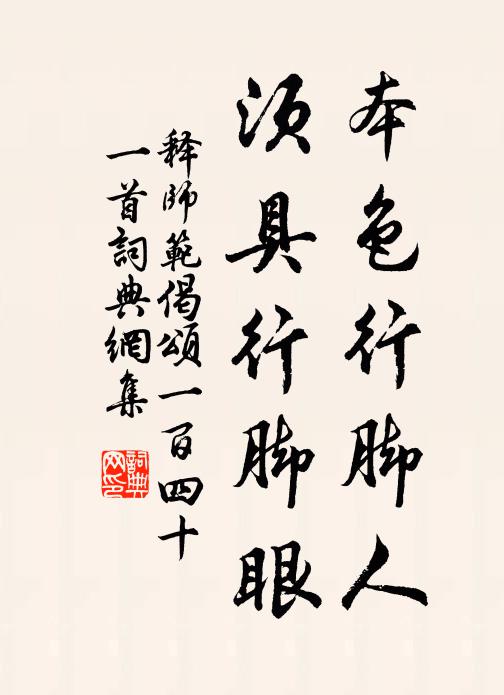 本色行脚人
须具行脚眼
释师範偈頌一百四十
一首詞典網集
詞典网印